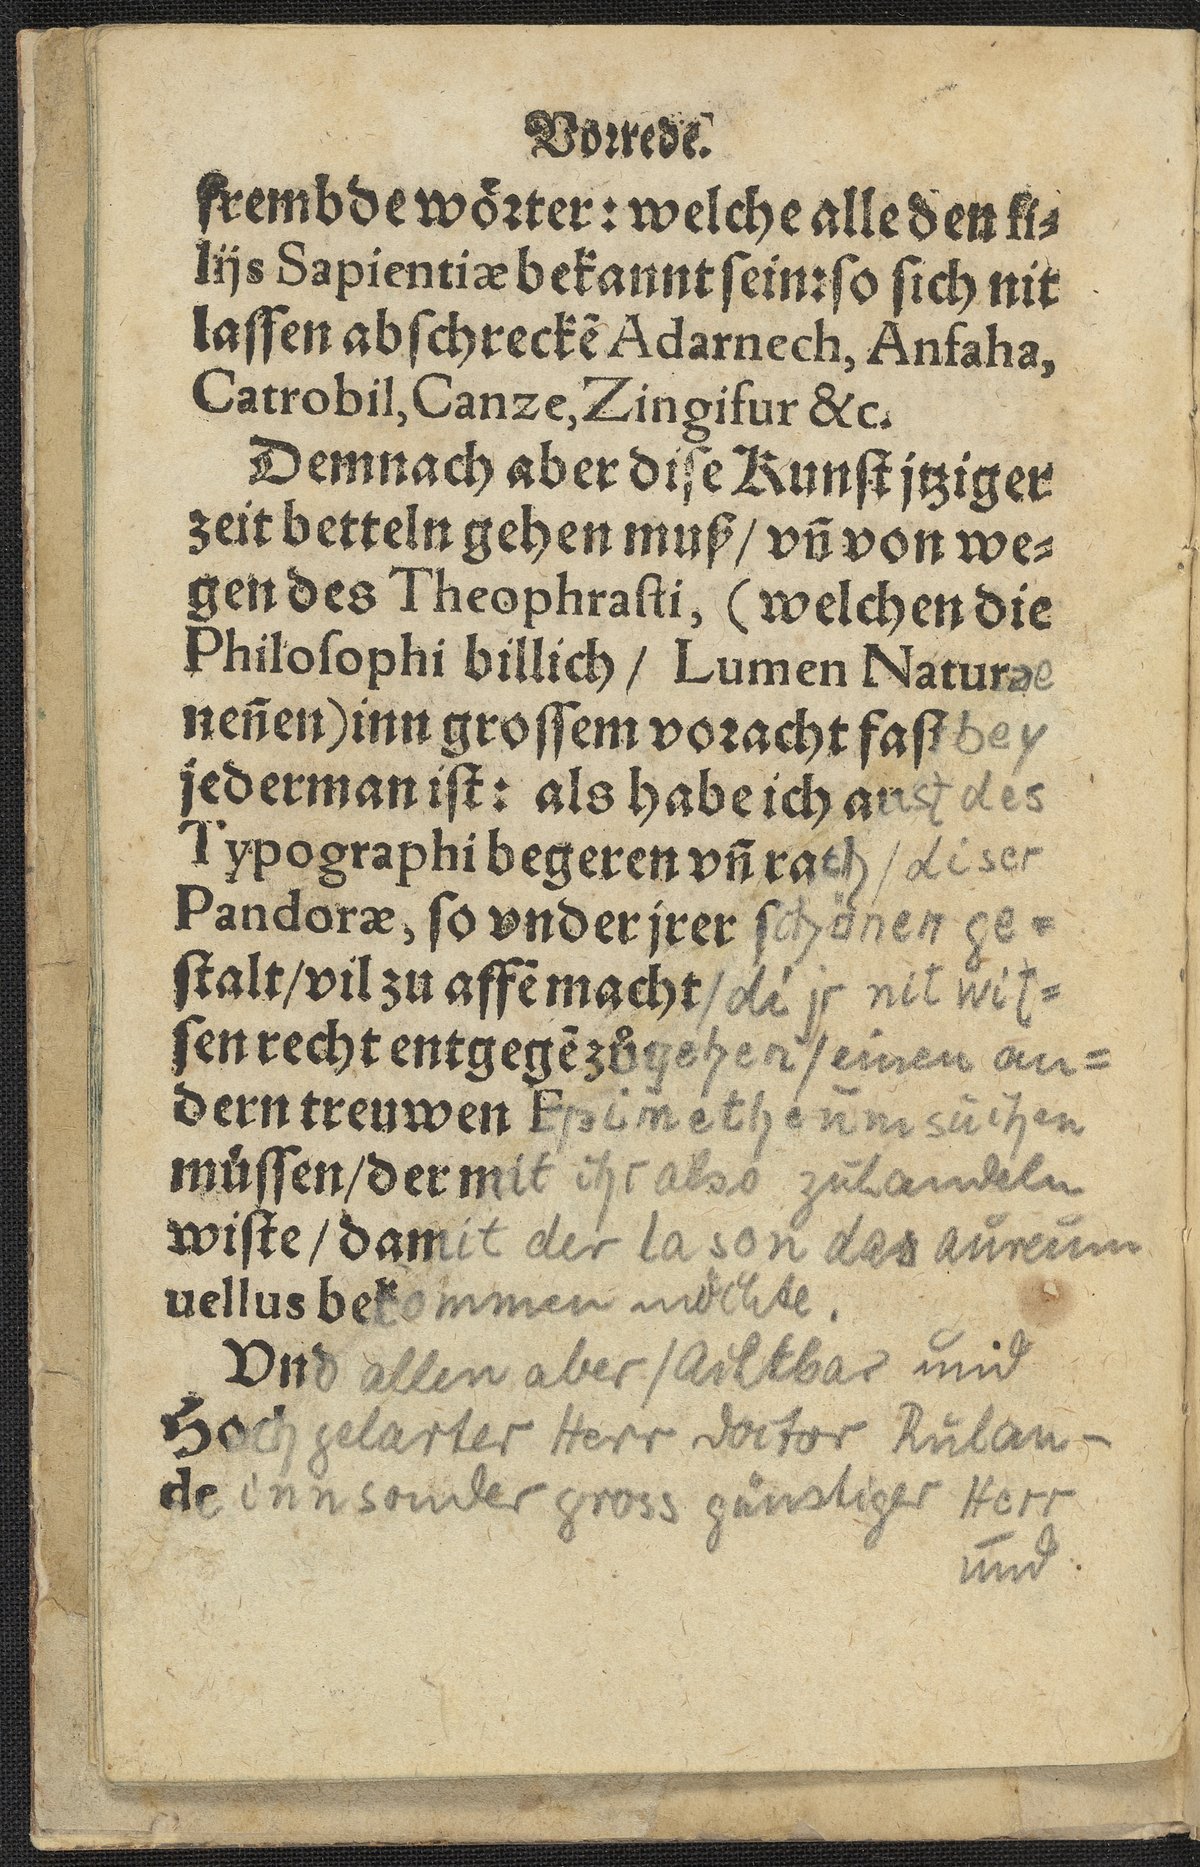 Vorrede.
frembde wörter: welche alle den fi⸗
lijs Sapientiæ bekannt sein: so sich nit
lassen abschreckẽ Adarnech, Anfaha,
Catrobil, Canze, Zingifur &c.
Demnach aber dise Kunst jtziger
zeit betteln gehen muß / vñ von we⸗
gen des Theophrasti, (welchen die
Philosophi billich / Lumen Naturae
neñen) inn grossem voracht fast bey
jederman ist: als habe ich aust des
Typographi begeren vñ rath / diser
Pandoræ, so vnder jrer schönen ge⸗
stalt / vil zu affẽ macht / di jr nit wis⸗
sen recht entgegẽ zůgehen / einen an⸗
dern treuwen Epimetheum suchen
müssen / der mit ihr also zuhandeln
wiste / damit der Iason das aureum
uellus bekommen möchte.
Vnd allen aber / Achtbar und
Hochgelarter Herr Doctor Rulan-
de innsonder gross günstiger Herr
und